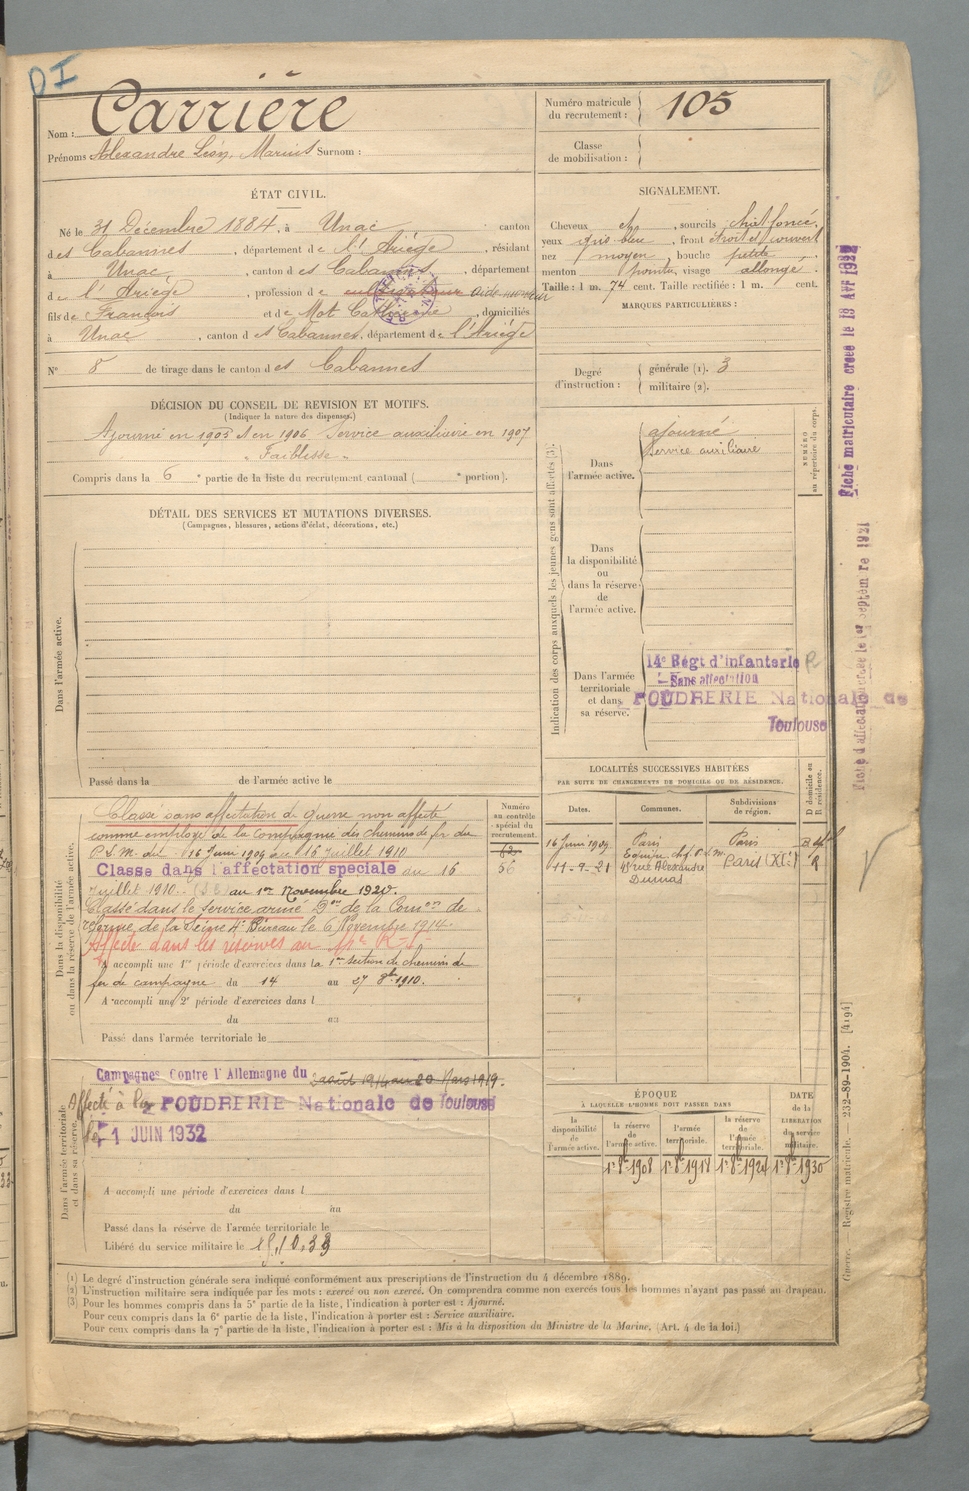 DI
Nom : Carrière
Prénoms Alexandre Léon, Marius Surnom :
Numéro matricule du recrutement : 105
Classe de mobilisation :
ÉTAT CIVIL.
Né le 31 Décembre 1884, à Unac canton
des Cabannes, département de l'Ariège, résidant
à Unac, canton des Cabannes, département
de l'Ariège, profession de cultivateur aide-
fils de François et de Mot Catherine, domiciliés
à Unac, canton des Cabannes, département de l'Ariège
N° 8 de tirage dans le canton des Cabannes
SIGNALEMENT.
Cheveux, sourcils chat foncé,
yeux gris-bleu, front étroit et couvert
nez moyen, bouche petite,
menton pointu, visage allongé.
Taille : 1 m. 74 cent. Taille rectifiée : 1 m. cent.
MARQUES PARTICULIÈRES :
Degré d'instruction : générale (1). 3
militaire (2).
DÉCISION DU CONSEIL DE REVISION ET MOTIFS.
(Indiquer la nature des dispenses.)
Ajourné en 1905 et en 1906 Service auxiliaire en 1907
" Faiblesse "
Compris dans la 6e partie de la liste du recrutement cantonal ( e portion).
DÉTAIL DES SERVICES ET MUTATIONS DIVERSES.
(Campagnes, blessures, actions d'éclat, décorations, etc.)
Dans l'armée active.
Passé dans la de l'armée active le
Indication des corps auxquels les jeunes gens sont affectés (3).
NUMÉRO au répertoire du corps.
Dans l'armée active.
ajourné
Service auxiliaire
Dans la disponibilité ou dans la réserve de l'armée active.
Dans l'armée territoriale et dans sa réserve.
14e Régt d'infanterie R
Sans affectation
POUDRERIE Nationale de
Toulouse
Dans la disponibilité ou dans la réserve de l'armée active.
Classé sans affectation de guerre non affecté
comme employé de la Compagnie des chemins de fer du
P.L.M. du 16 Juin 1909 au 16 Juillet 1910
Classe dans l'affectation spéciale au 16
Juillet 1910. au 1er Novembre 1920.
Classé dans le service armé Don de la Comon de
réforme de la Seine 4e Bureau le 6 Novembre 1914.
Affecté dans les réserves au
A accompli une 1re période d'exercices dans la 1re section de chemins de
fer de campagne du 14 au 27 8bre 1910.
A accompli une 2e période d'exercices dans l
du au
Passé dans l'armée territoriale le
Numéro au contrôle spécial du recrutement.
56
LOCALITÉS SUCCESSIVES HABITÉES
PAR SUITE DE CHANGEMENTS DE DOMICILE OU DE RÉSIDENCE.
Dates. Communes. Subdivisions de région. D domicile ou R résidence.
16 Juin 1909 Paris Paris
11-9-21 49 rue Alexandre Dumas Paris (XIe) R
Dans l'armée territoriale et dans sa réserve.
Campagnes Contre l'Allemagne du 2 août 1914 au 20 Mars 1919.
Affecté à la POUDRERIE Nationale de Toulouse
le 1 JUIN 1932
A accompli une période d'exercices dans l
du au
Passé dans la réserve de l'armée territoriale le
Libéré du service militaire le 15.10.33
ÉPOQUE
À LAQUELLE L'HOMME DOIT PASSER DANS
la disponibilité de l'armée active.
la réserve de l'armée active.
l'armée territoriale.
la réserve de l'armée territoriale.
DATE de la LIBÉRATION du service militaire.
1r 8bre 1908 1r 8bre 1918 1r 8bre 1924 1r 8bre 1930
(1) Le degré d'instruction générale sera indiqué conformément aux prescriptions de l'instruction du 4 décembre 1889.
(2) L'instruction militaire sera indiquée par les mots : exercé ou non exercé. On comprendra comme non exercés tous les hommes n'ayant pas passé au drapeau.
(3) Pour les hommes compris dans la 5e partie de la liste, l'indication à porter est : Ajourné.
Pour ceux compris dans la 6e partie de la liste, l'indication à porter est : Service auxiliaire.
Pour ceux compris dans la 7e partie de la liste, l'indication à porter est : Mis à la disposition du Ministre de la Marine. (Art. 4 de la loi.)
Fiche matriculaire créée le 13 AVR
Fiche d'affectation créée le 1er Septembre 1921
Guerre. — Registre matricule. — 232-89-1904. [4194]